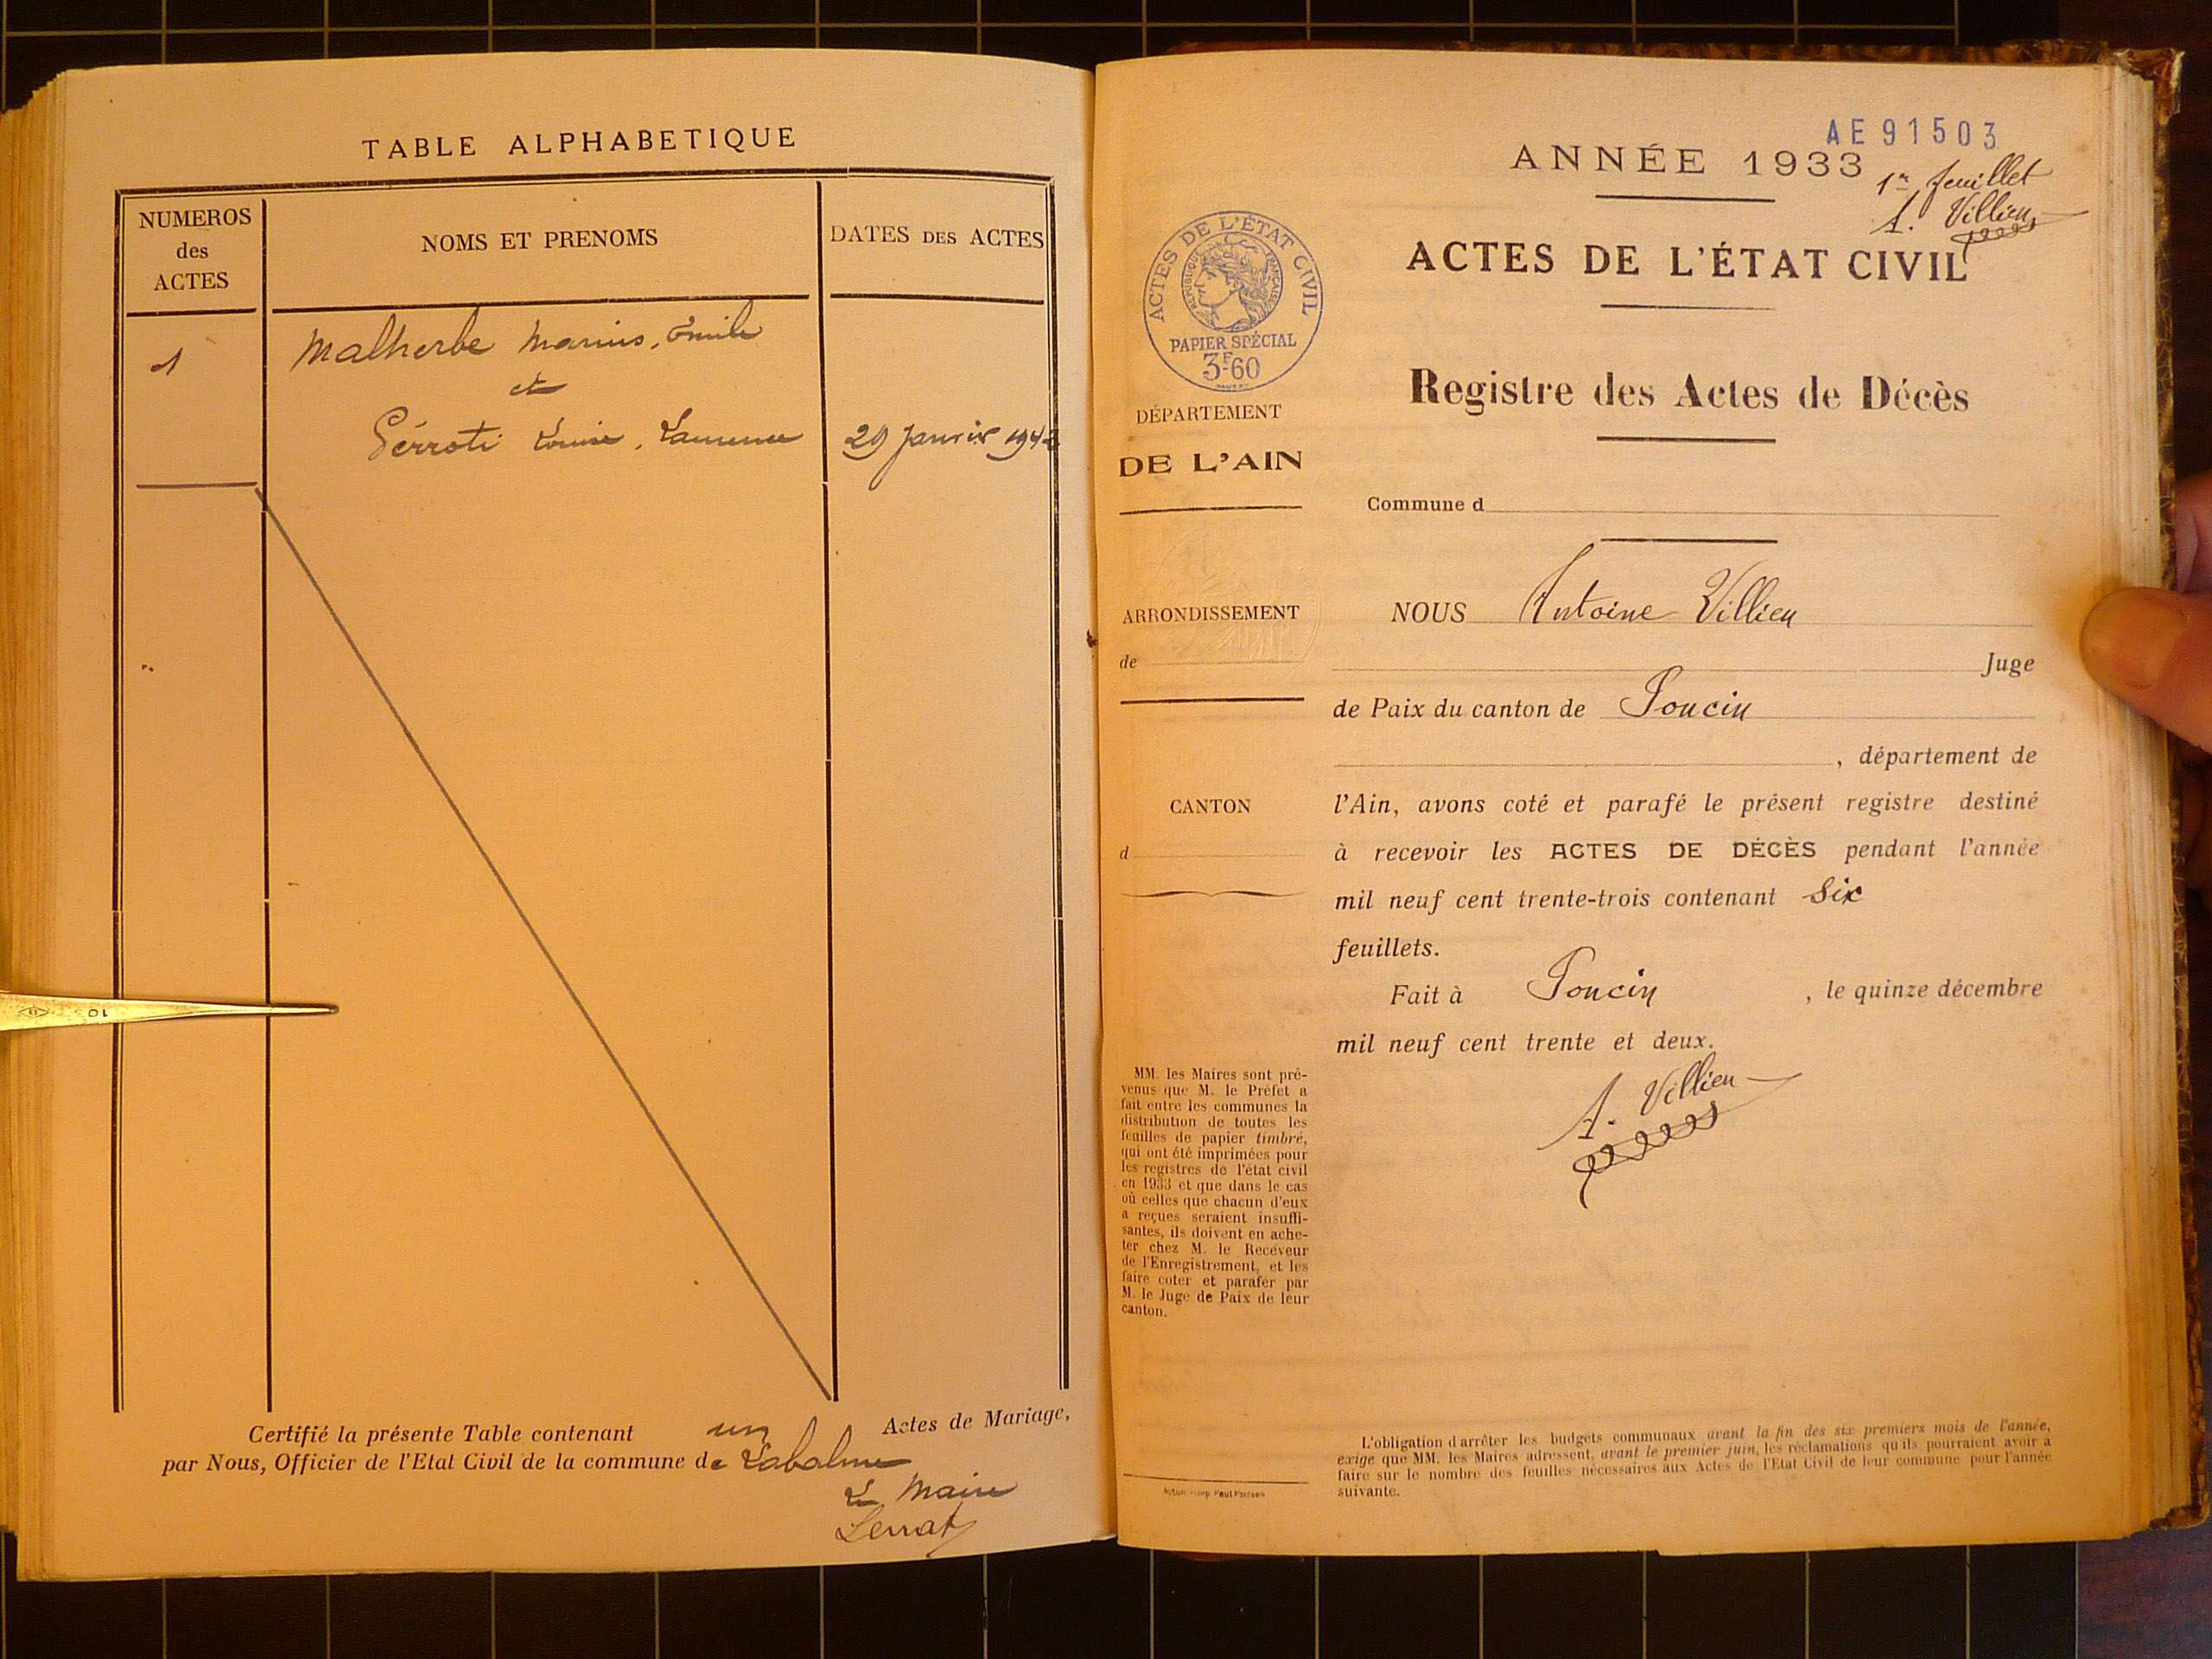 TABLE ALPHABETIQUE
NUMEROS
des
ACTES
NOMS ET PRENOMS
DATES DES ACTES
1
Malherbe Marius, Émile
et
Perroti Louise, Laurence
29 Janvier 194
10
Certifié la présente Table contenant un Actes de Mariage,
par Nous, Officier de l'Etat Civil de la commune de Labalme
Le Maire
AE 91503
ANNÉE 1933
1er feuillet
A. Villien
ACTES DE L'ÉTAT CIVIL
RÉPUBLIQUE FRANÇAISE
PAPIER SPÉCIAL
3F60
ACTES DE L'ÉTAT CIVIL
Registre des Actes de Décès
DÉPARTEMENT
DE L'AIN
Commune d
ARRONDISSEMENT
de
CANTON
d
NOUS Antoine Villien
Juge
de Paix du canton de Poncin
, département de
l'Ain, avons coté et parafé le présent registre destiné
à recevoir les ACTES DE DÉCÈS pendant l'année
mil neuf cent trente-trois contenant Six
feuillets.
Fait à Poncin , le quinze décembre
mil neuf cent trente et deux.
A. Villien
MM. les Maires sont pré-
venus que M. le Préfet a
fait entre les communes la
distribution de toutes les
feuilles de papier timbré,
qui ont été imprimées pour
les registres de l'état civil
en 1933 et que dans le cas
où celles que chacun d'eux
a reçues seraient insuffi-
santes, ils doivent en ache-
ter chez M. le Receveur
de l'Enregistrement, et les
faire coter et parafer par
M. le Juge de Paix de leur
canton.
L'obligation d'arrêter les budgets communaux avant la fin des six premiers mois de l'année,
exige que MM. les Maires adressent, avant le premier juin, les réclamations qu'ils pourraient avoir à
faire sur le nombre des feuilles nécessaires aux Actes de l'Etat Civil de leur commune pour l'année
suivante.